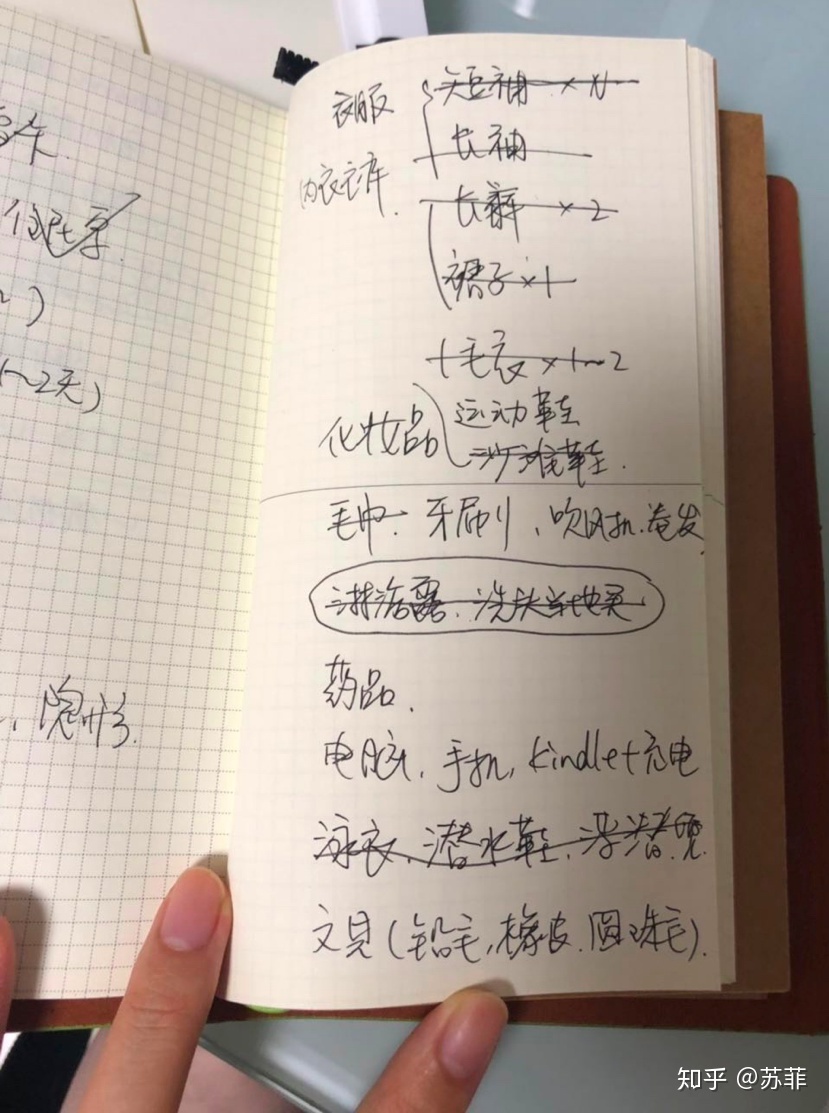 住民票
)
1~2天)
隐形
衣服 短袖 × N
长袖
内衣衣库. 长裤 × 2
裙子 × 1
毛衣 × 1~2
化妆品 运动鞋
沙滩鞋.
毛巾. 牙刷、吹风机.卷发
沐浴露. 洗头
药品.
电脑, 手机, kindle+充电
泳衣. 潜水鞋, 浮潜
文具(铅毛,橡皮.圆珠毛).
知乎 @苏菲